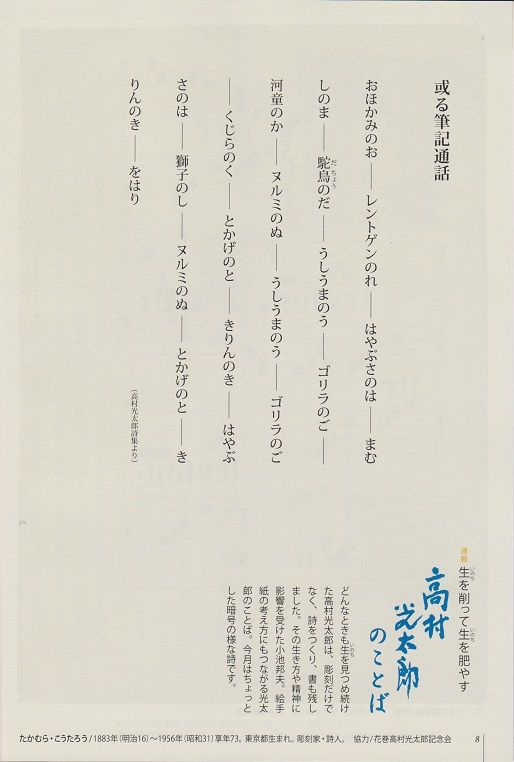 或る筆記通話
おほかみのお――レントゲンのれ――はやぶさのは――まむ
しのま――駝鳥のだ――うしうまのう――ゴリラのご――
だちょう
河童のか――ヌルミのぬ――うしうまのう――ゴリラのご
――くじらのく――とかげのと――きりんのき――はやぶ
さのは――獅子のし――ヌルミのぬ――とかげのと――き
りんのき――をはり
(高村光太郎詩集より)
連載 生を削って生を肥やす
いのち いのち
高村
光太郎
のことば
どんなときも生を見つめ続け
いのち
た高村光太郎は、彫刻だけで
なく、詩をつくり、書も残し
ました。その生き方や精神に
影響を受けた小池邦夫。絵手
紙の考え方にもつながる光太
郎のことば。今月はちょっと
した暗号の様な詩です。
たかむら・こうたろう/1883年(明治16)〜1956年(昭和31)享年73。東京都生まれ。彫刻家・詩人。 協力/花巻高村光太郎記念会 8